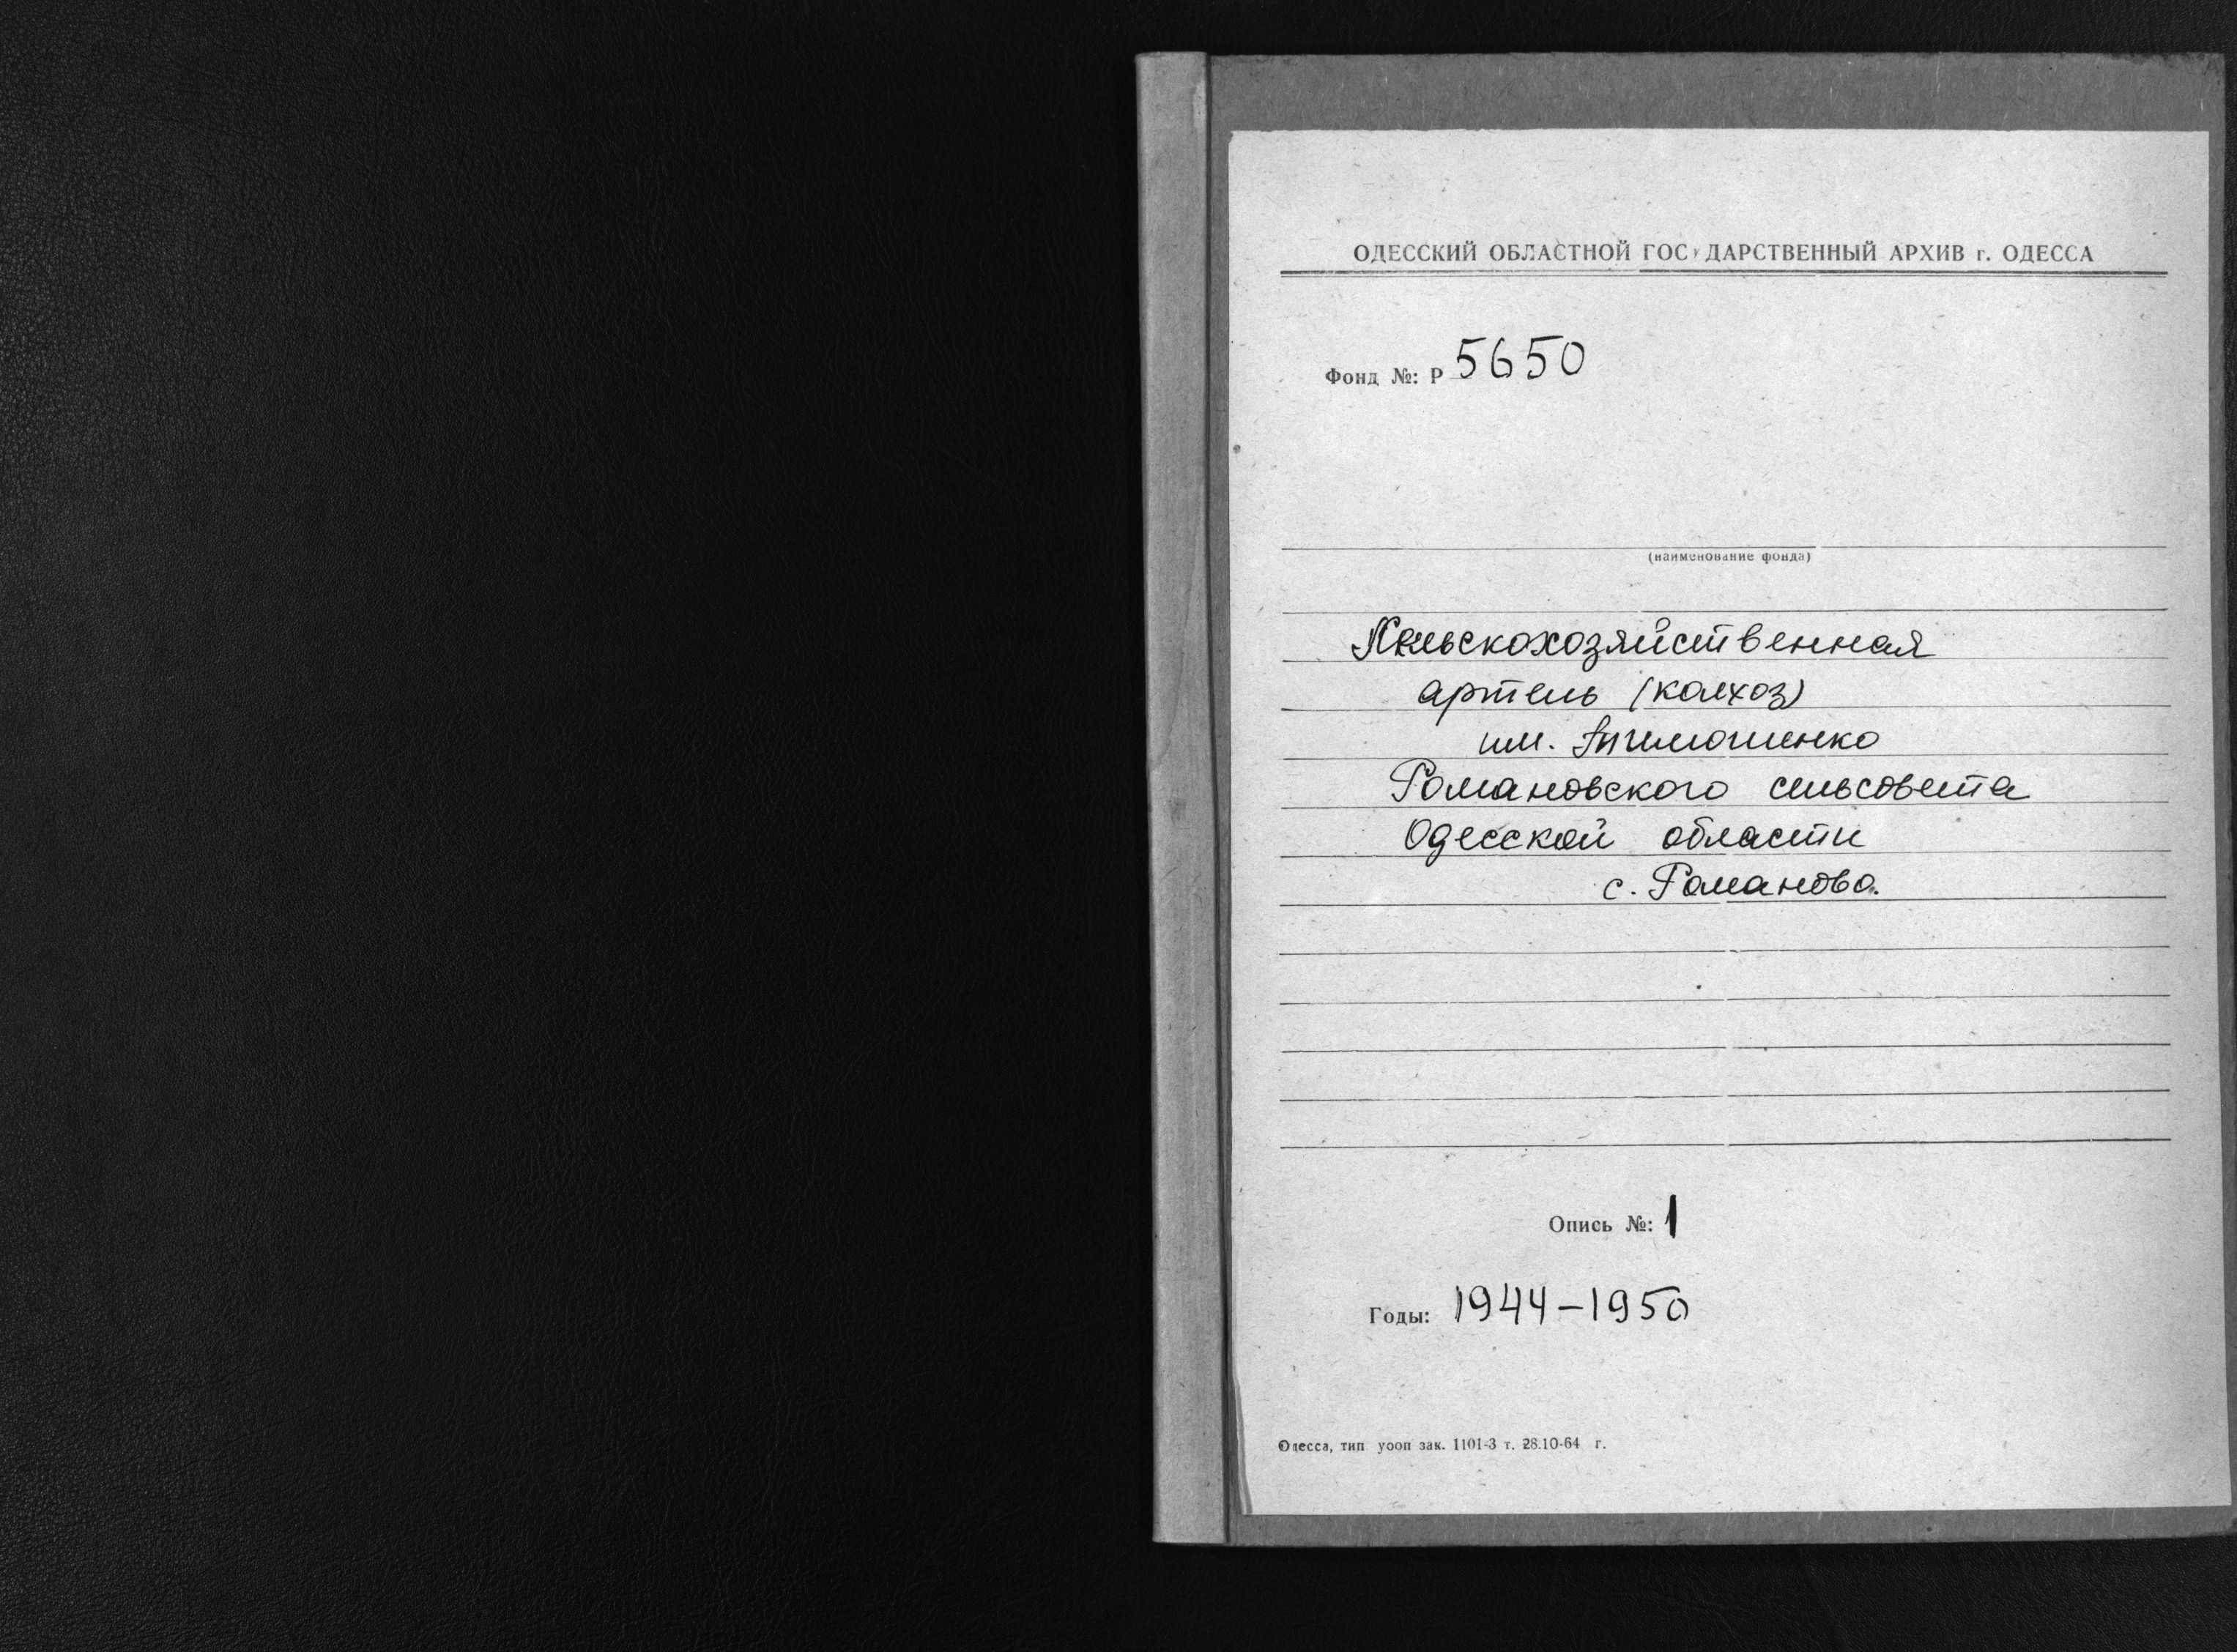 ОДЕССКИЙ ОБЛАСТНОЙ ГОСУДАРСТВЕННЫЙ АРХИВ г. ОДЕССА
Фонд №: Р 5650
(наименование фонда)
Сельскохозяйственная
артель (колхоз)
им. Тимошенко
Романовского сельсовета
Одесской области
с. Романово.
Опись №: 1
Годы: 1944-1950
Одесса, тип уооп зак. 1101-3 т. 28.10-64 г.